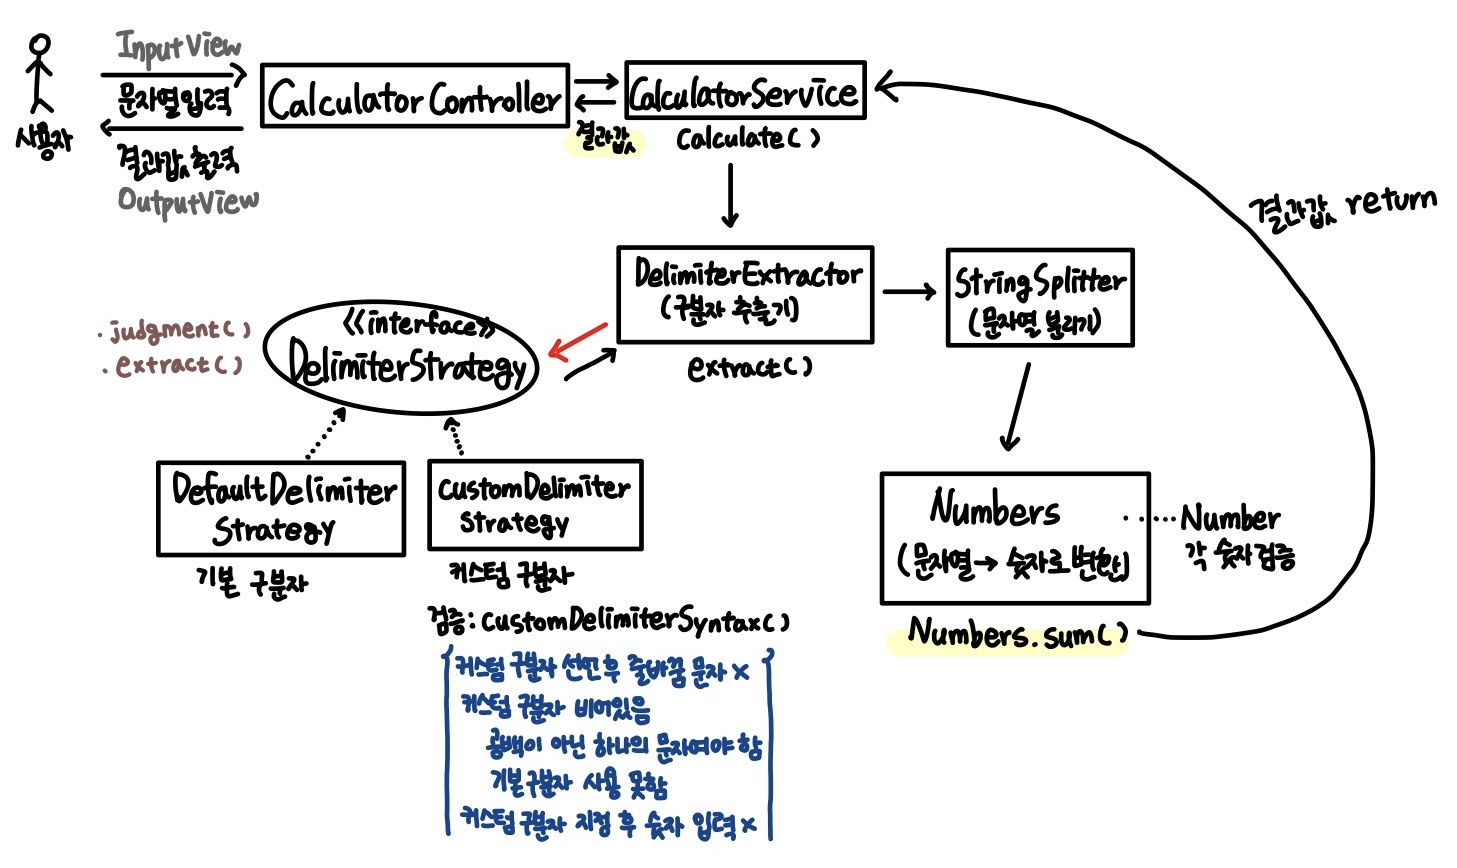 InputView
문자열입력
사용자
결과값 출력
OutputView
CalculatorController
결과값
CalculatorService
Calculate()
결과값 return
DelimiterExtractor
(구분자 추출기)
extract()
StringSplitter
(문자열 분리기)
.judgment()
.extract()
《interface》
DelimiterStrategy
DefaultDelimiter
Strategy
기본 구분자
customDelimiter
Strategy
커스텀 구분자
검증: customDelimiterSyntax()
커스텀 구분자 선언 후 줄바꿈 문자 x
커스텀 구분자 비어있음
공백이 아닌 하나의 문자여야 함
기본구분자 사용 못함
커스텀 구분자 지정 후 숫자 입력 x
Numbers
(문자열→ 숫자로 변환)
Number
각 숫자검증
Numbers.sum()